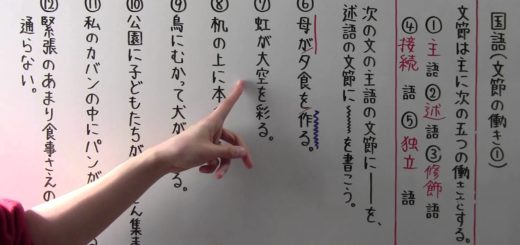 国語(文節の働き①)
文節は主に次の五つの働きをする。
①主語 ②述語 ③修飾語
④接続語 ⑤独立語
次の文の主語の文節に――を、
述語の文節に〰〰を書こう。
⑥母が夕食を作る。
⑦虹が大空を彩る。
⑧机の上に本
⑨鳥にむかって犬が る。
⑩公園に子どもたちが さん集ま
⑪私のカバンの中にパンが
⑫緊張のあまり食事さえの
通らない。